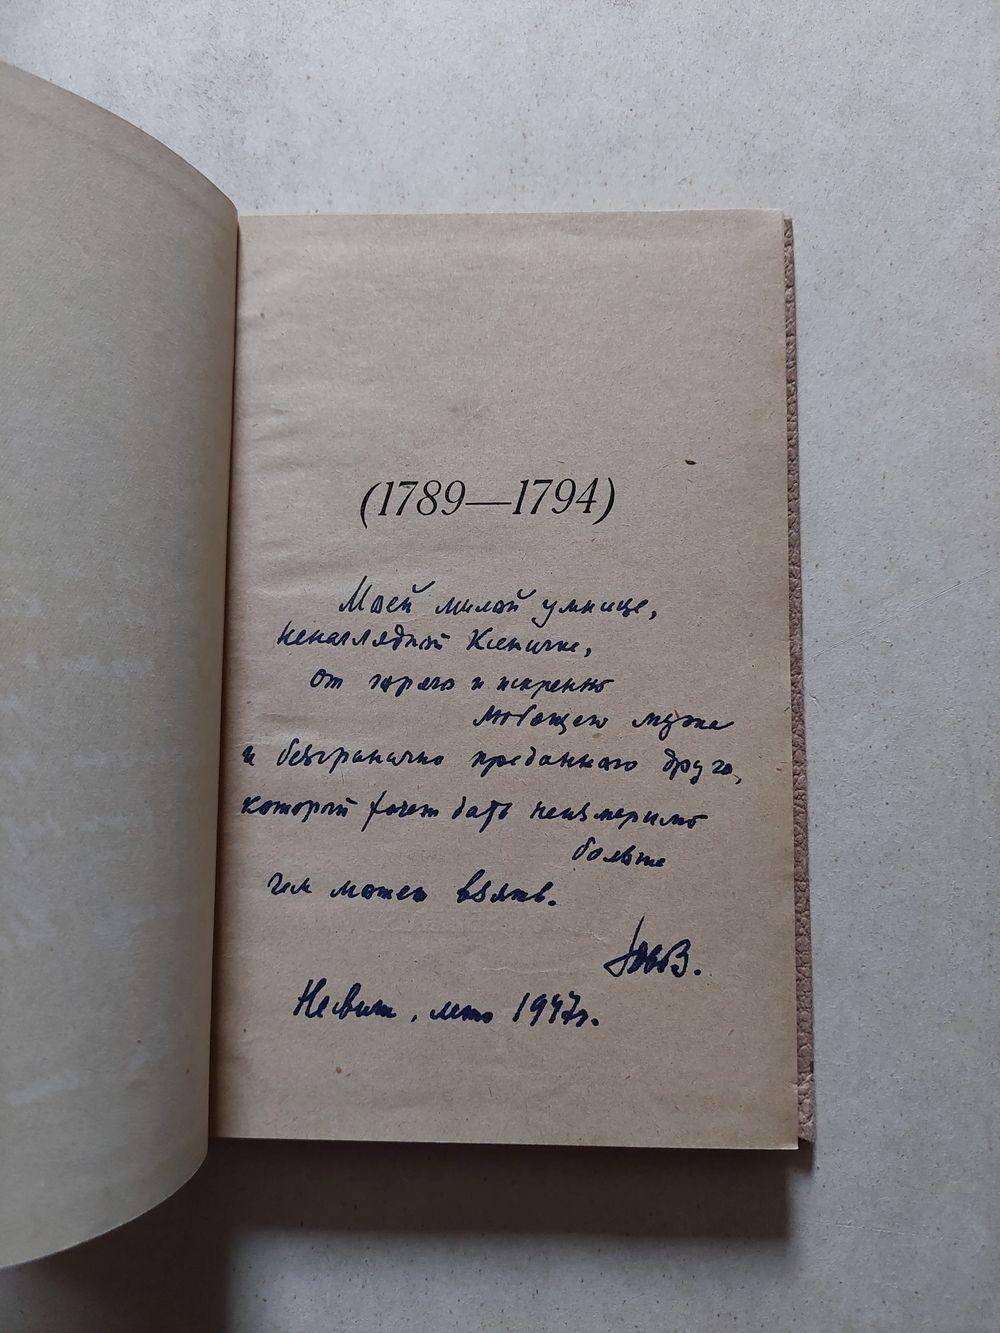 (1789—1794)
Моей милой умнице,
ненаглядной Ксеничке,
от горячо и искренно
любящего мужа
и безгранично преданного друга,
который хочет дать неизмеримо
больше
чем может взять.
Несвиж, лето 1947г.